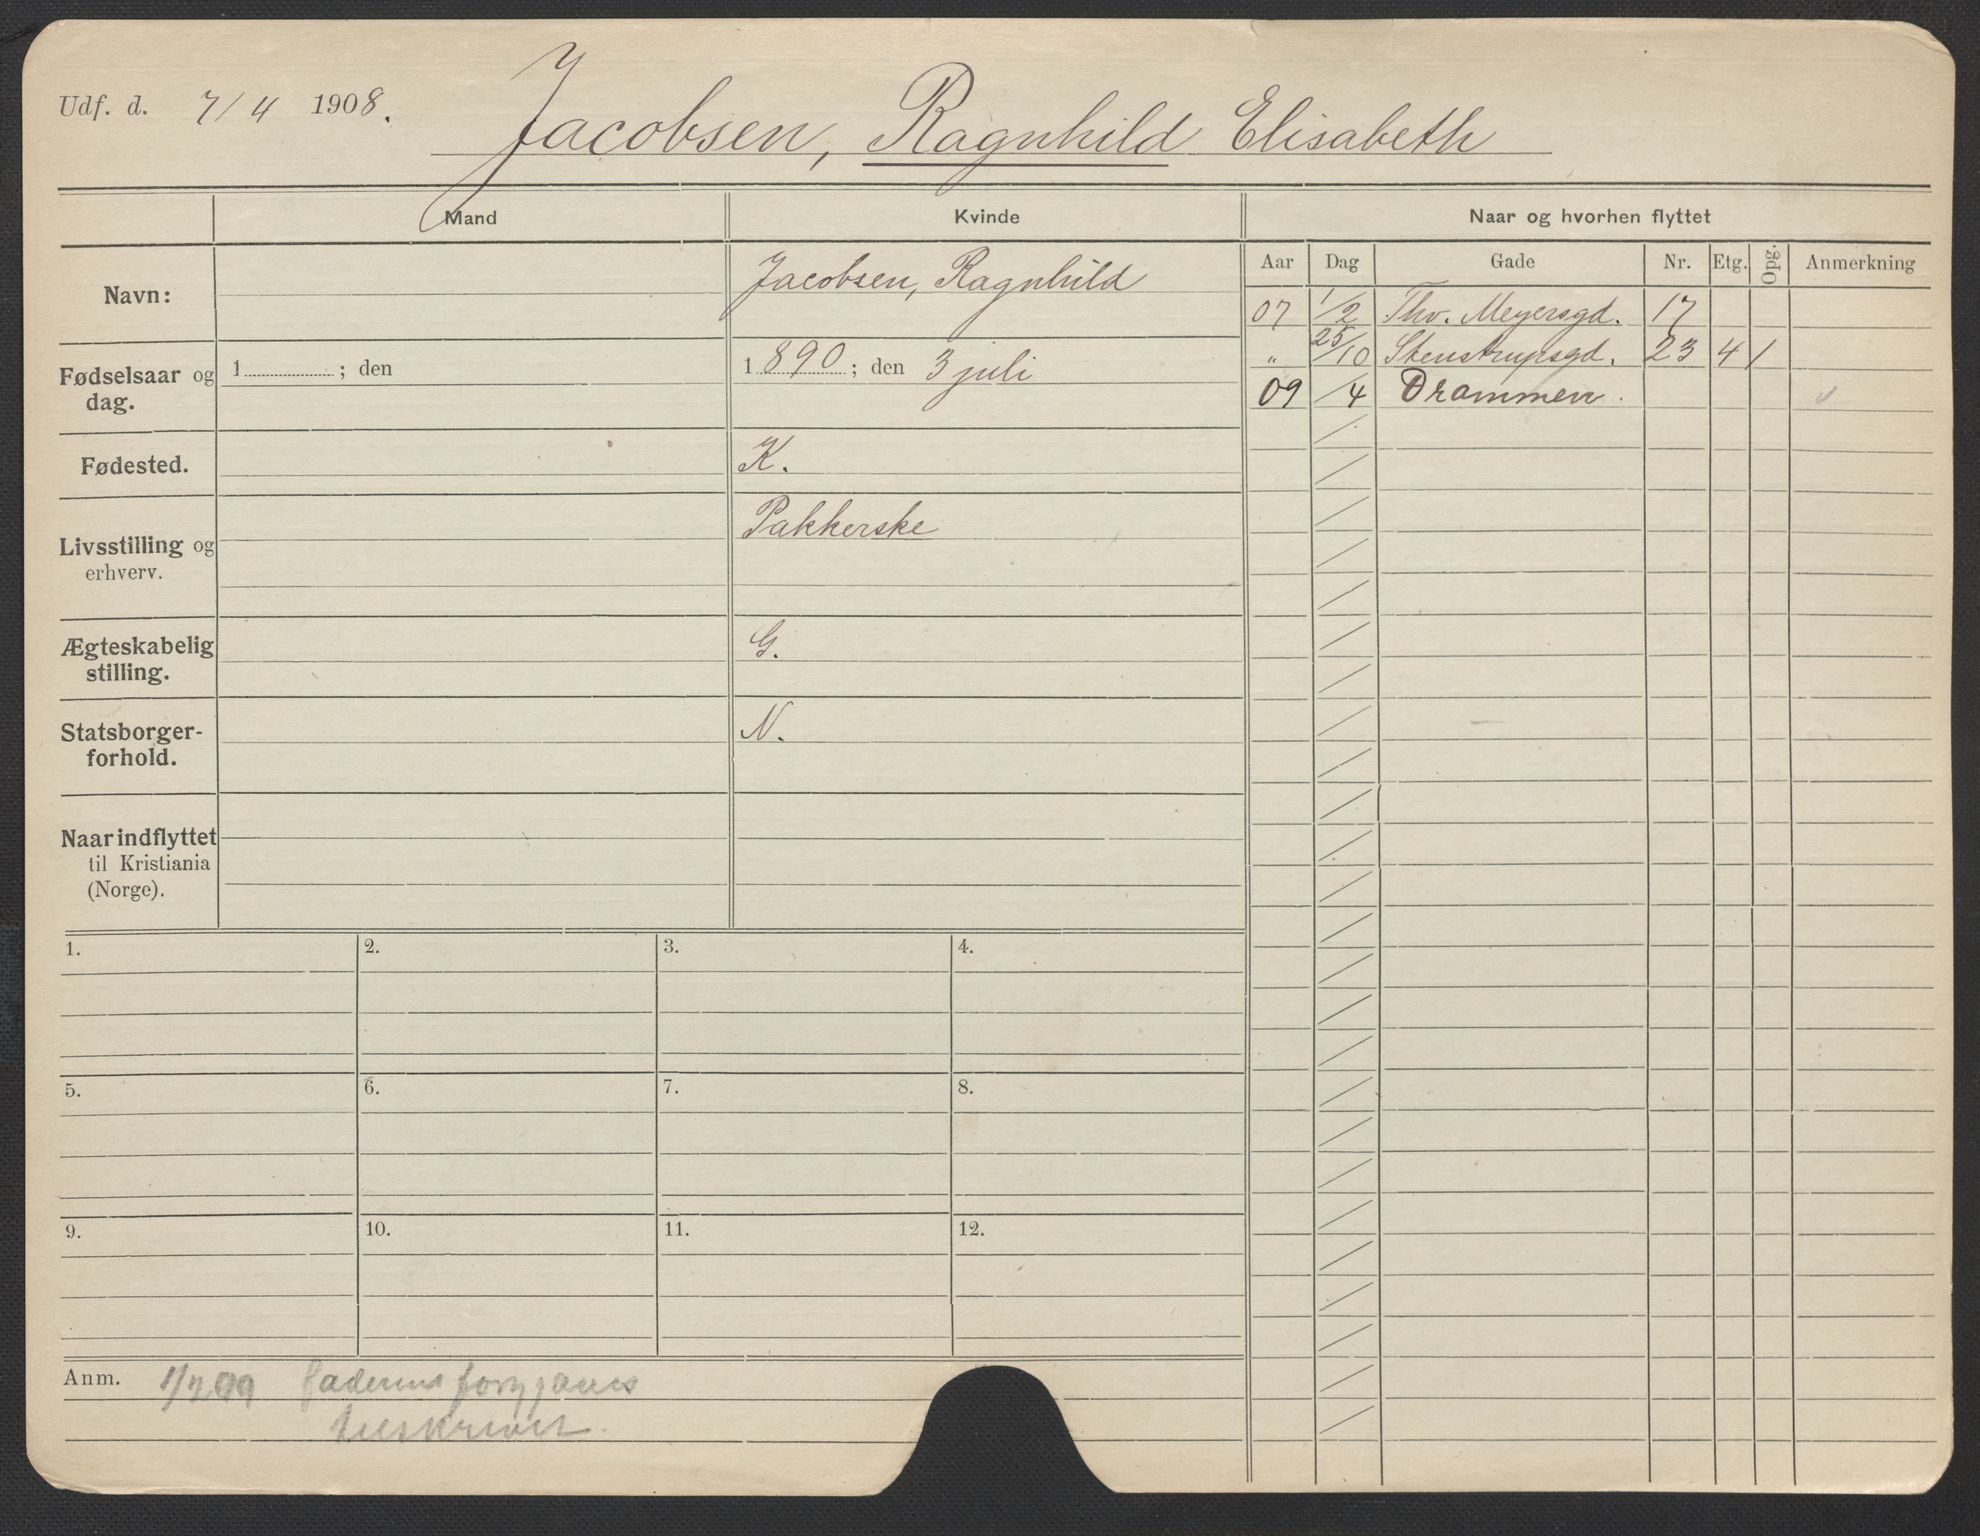 Udf. d. 7/4 1908.
Jacobsen, Ragnhild Elisabeth
Mand Kvinde Naar og hvorhen flyttet
Aar Dag Gade Nr. Etg. Opg. Anmerkning
Navn: Jacobsen, Ragnhild
07 1/2 Thv. Meyersgd. 17
" 25/10 Stenstrupsgd. 23 4 /
09 /4 Drammen.
Fødselsaar og dag. 1 ; den 1890; den 3 juli
Fødested. K.
Livsstilling og erhverv. Pakkerske
Ægteskabelig stilling. G.
Statsborgerforhold. N.
Naar indflyttet
til Kristiania
(Norge).
1. 2. 3. 4.
5. 6. 7. 8.
9. 10. 11. 12.
Anm. 1/2 09